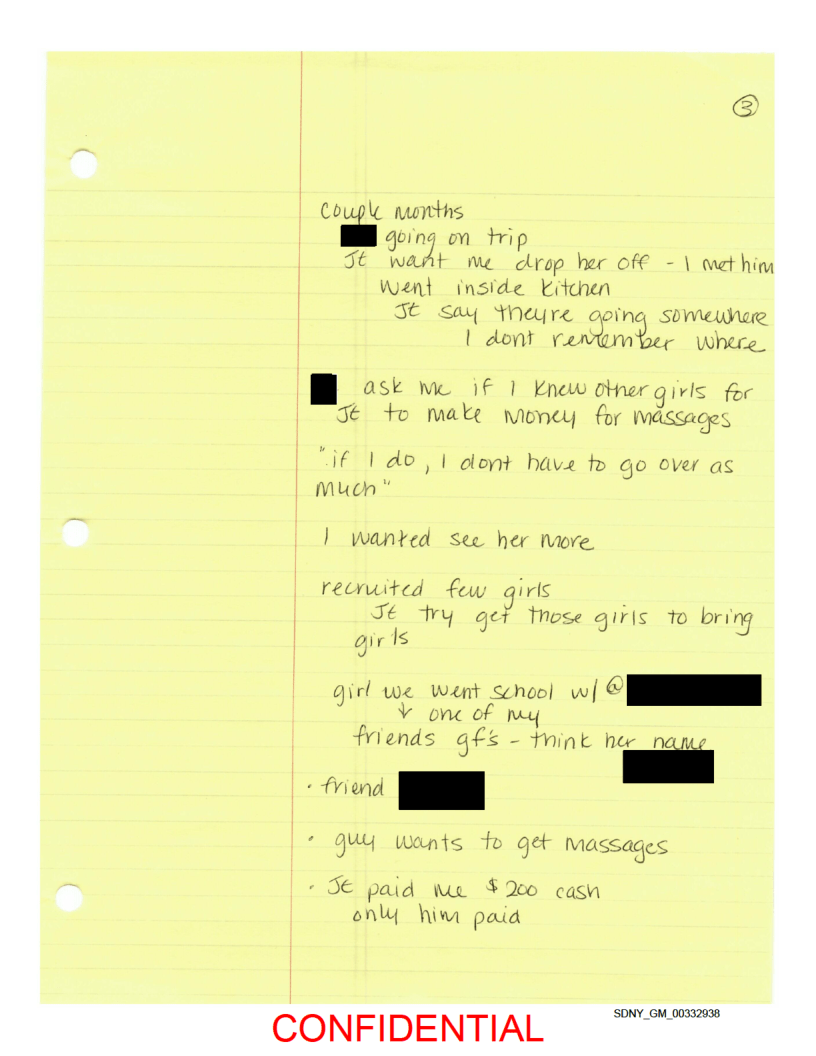 3
couple months
going on trip
JE want me drop her off - I met him
went inside kitchen
JE say theyre going somewhere
I dont remember where
ask me if I knew other girls for
JE to make money for massages
"if I do, I dont have to go over as
much"
I wanted see her more
recruited few girls
JE try get those girls to bring
girls
girl we went school w/ @
↓ one of my
friends gf's - think her name
· friend
· guy wants to get massages
· JE paid me $200 cash
only him paid
CONFIDENTIAL
SDNY_GM_00332938